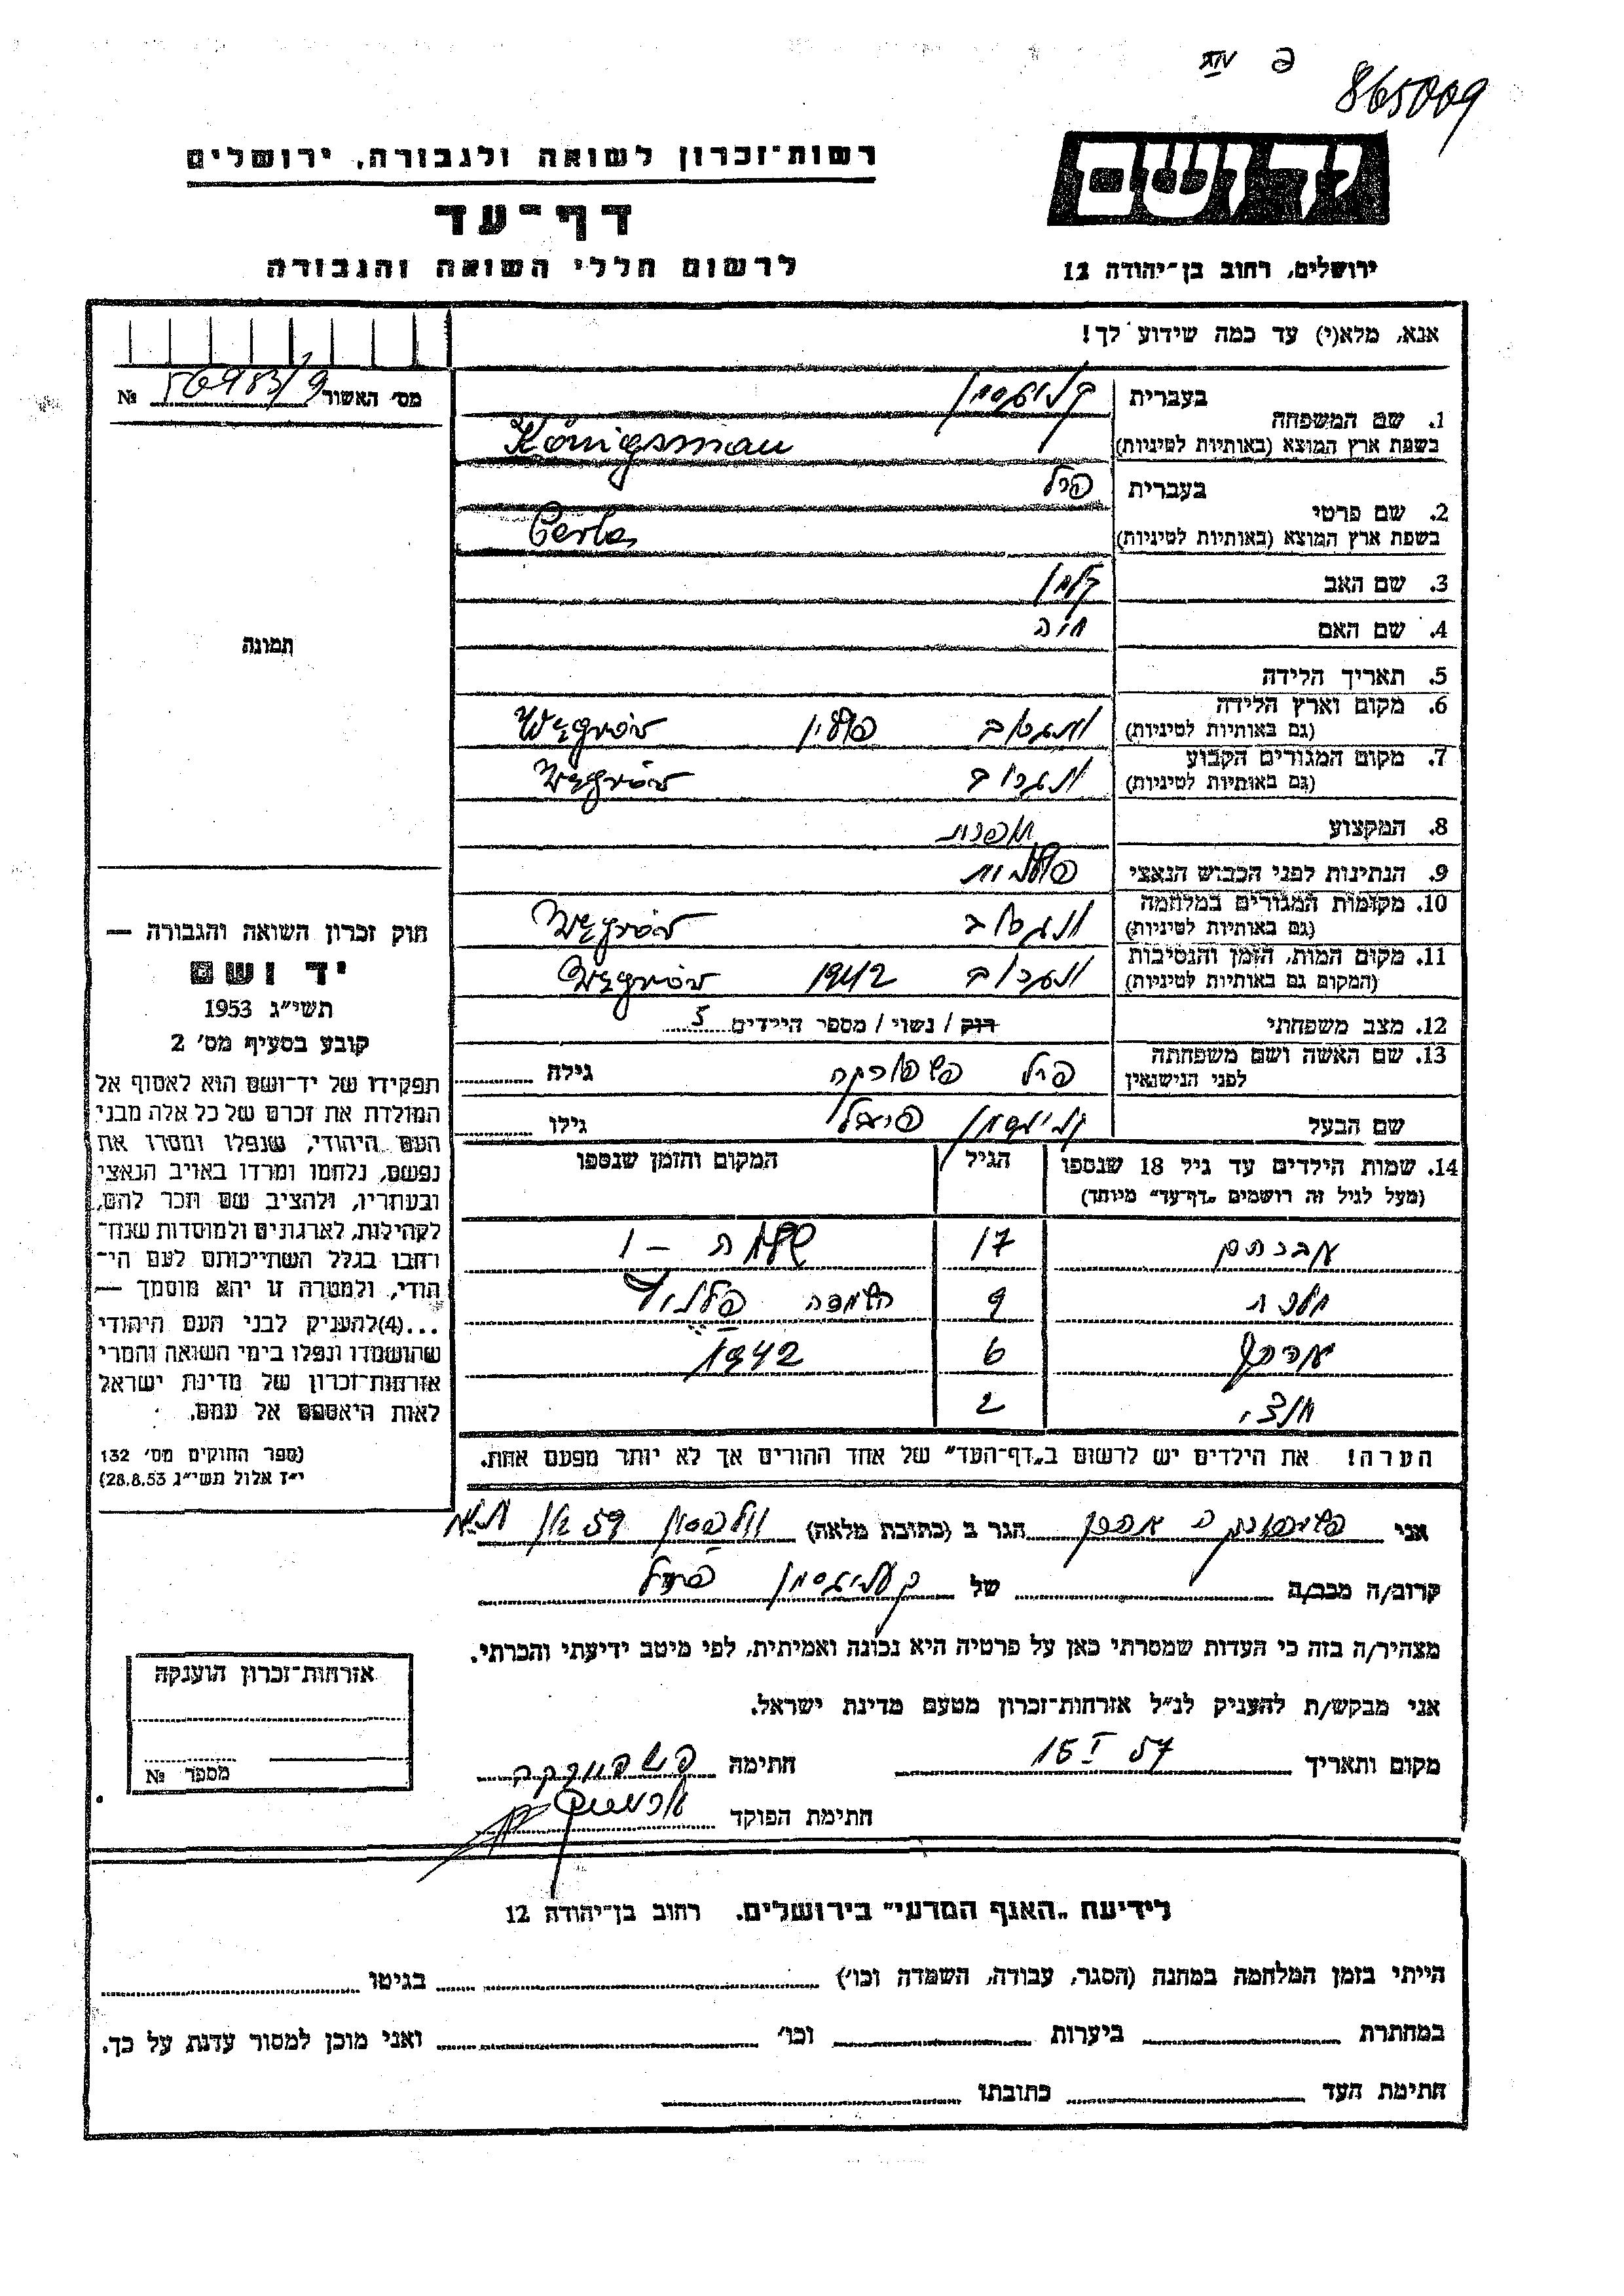 865009
רשות־זכרון לשואה ולגבורה, ירושלים
יד ושם
דף־עד
לרשום חללי השואה והגבורה
ירושלים, רחוב בן־יהודה 12
אנא, מלא(י) עד כמה שידוע לך!
מס׳ האשור 56983/9 №
1. שם המשפחה
בעברית
בשפת ארץ המוצא (באותיות לטיניות) Königsman
2. שם פרטי
בעברית פרל
בשפת ארץ המוצא (באותיות לטיניות) Perla
3. שם האב קלמן
4. שם האם חיה
תמונה
5. תאריך הלידה
6. מקום וארץ הלידה פולין Węgrów
(גם באותיות לטיניות)
7. מקום המגורים הקבוע Węgrów
(גם באותיות לטיניות)
8. המקצוע
9. הנתינות לפני הכבוש הנאצי פולנית
10. מקומות המגורים במלחמה Węgrów
(גם באותיות לטיניות)
11. מקום המות, הזמן והנסיבות 1942 Węgrów
(המקום גם באותיות לטיניות)
12. מצב משפחתי רוק / נשוי / מספר הילדים 5
13. שם האשה ושם משפחתה פרל גילה
לפני הנישואין
שם הבעל גילו
14. שמות הילדים עד גיל 18 שנספו הגיל המקום והזמן שנספו
(מעל לגיל זה רושמים „דף־עד״ מיוחד)
אברהם 17
מלכה 9
6 1942
2
הערה! את הילדים יש לרשום ב„דף־העד״ של אחד ההורים אך לא יותר מפעם אחת.
חוק זכרון השואה והגבורה —
יד ושם
תשי״ג 1953
קובע בסעיף מס׳ 2
תפקידו של יד־ושם הוא לאסוף אל
המולדת את זכרם של כל אלה מבני
העם היהודי, שנפלו ומסרו את
נפשם, נלחמו ומרדו באויב הנאצי
ובעוזריו, ולהציב שם וזכר להם,
לקהילות, לארגונים ולמוסדות שנח־
רבו בגלל השתייכותם לעם הי־
הודי, ולמטרה זו יהא מוסמך —
...(4)להעניק לבני העם היהודי
שהושמדו ונפלו בימי השואה והמרי
אזרחות־זכרון של מדינת ישראל
לאות היאספם אל עמם.
(ספר החוקים מס׳ 132
י״ז אלול תשי״ג 28.8.53)
אני הגר ב (כתובת מלאה) 59
קרוב/ה מכר/ה של
מצהיר/ה בזה כי העדות שמסרתי כאן על פרטיה היא נכונה ואמיתית, לפי מיטב ידיעתי והכרתי.
אני מבקש/ת להעניק לנ״ל אזרחות־זכרון מטעם מדינת ישראל.
מקום ותאריך 15 I 57 חתימה
חתימת הפוקד
אזרחות־זכרון הוענקה
מספר №
לידיעת „האגף המדעי״ בירושלים. רחוב בן־יהודה 12
הייתי בזמן המלחמה במחנה (הסגר, עבודה, השמדה וכו׳) בגיטו
במחתרת ביערות וכו׳ ואני מוכן למסור עדות על כך.
חתימת העד כתובתו